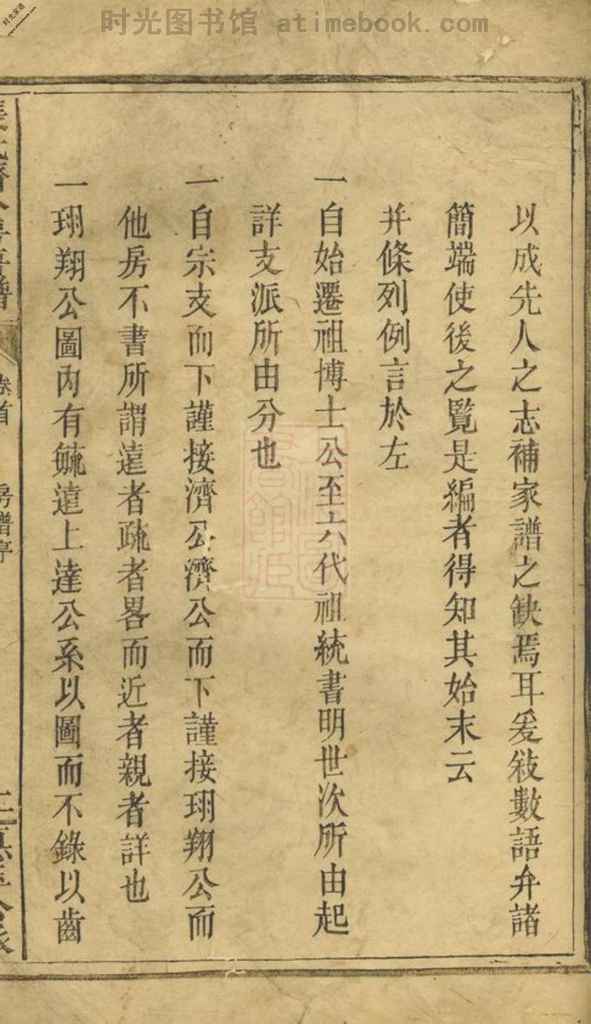 时光图书馆 - atimebook.com
以成先人之志補家譜之缺焉耳爰敍數語弁諸
簡端使後之覽是編者得知其始末云
并條列例言於左
一自始遷祖博士公至六代祖統書明世次所由起
詳支派所由分也
一自宗支而下謹接濟公濟公而下謹接珝翔公而
他房不書所謂遠者疏者畧而近者親者詳也
一珝翔公圖內有毓遠上達公系以圖而不錄以齒
卷首
房譜序